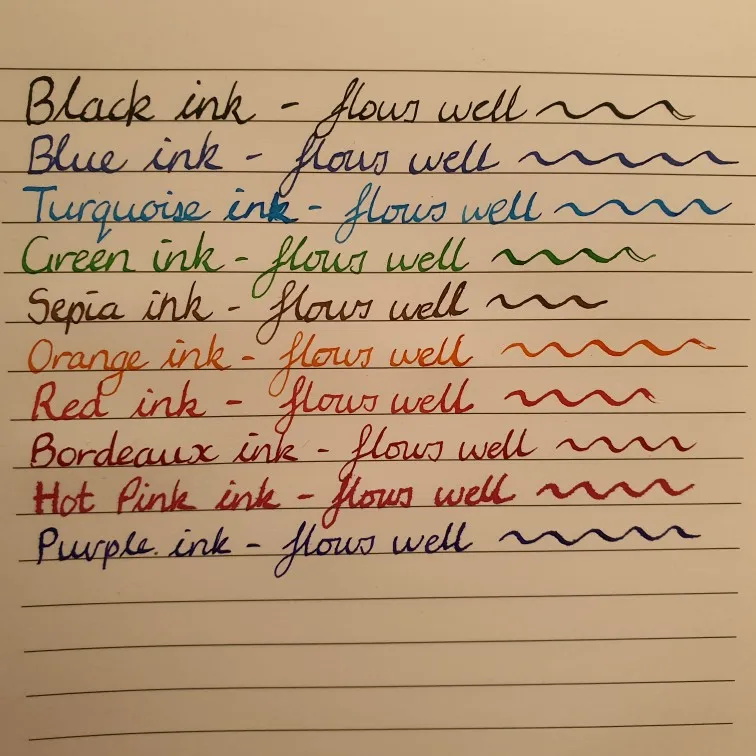 Black ink - flows well
Blue ink - flows well
Turquoise ink - flows well
Green ink - flows well
Sepia ink - flows well
Orange ink - flows well
Red ink - flows well
Bordeaux ink - flows well
Hot Pink ink - flows well
Purple ink - flows well